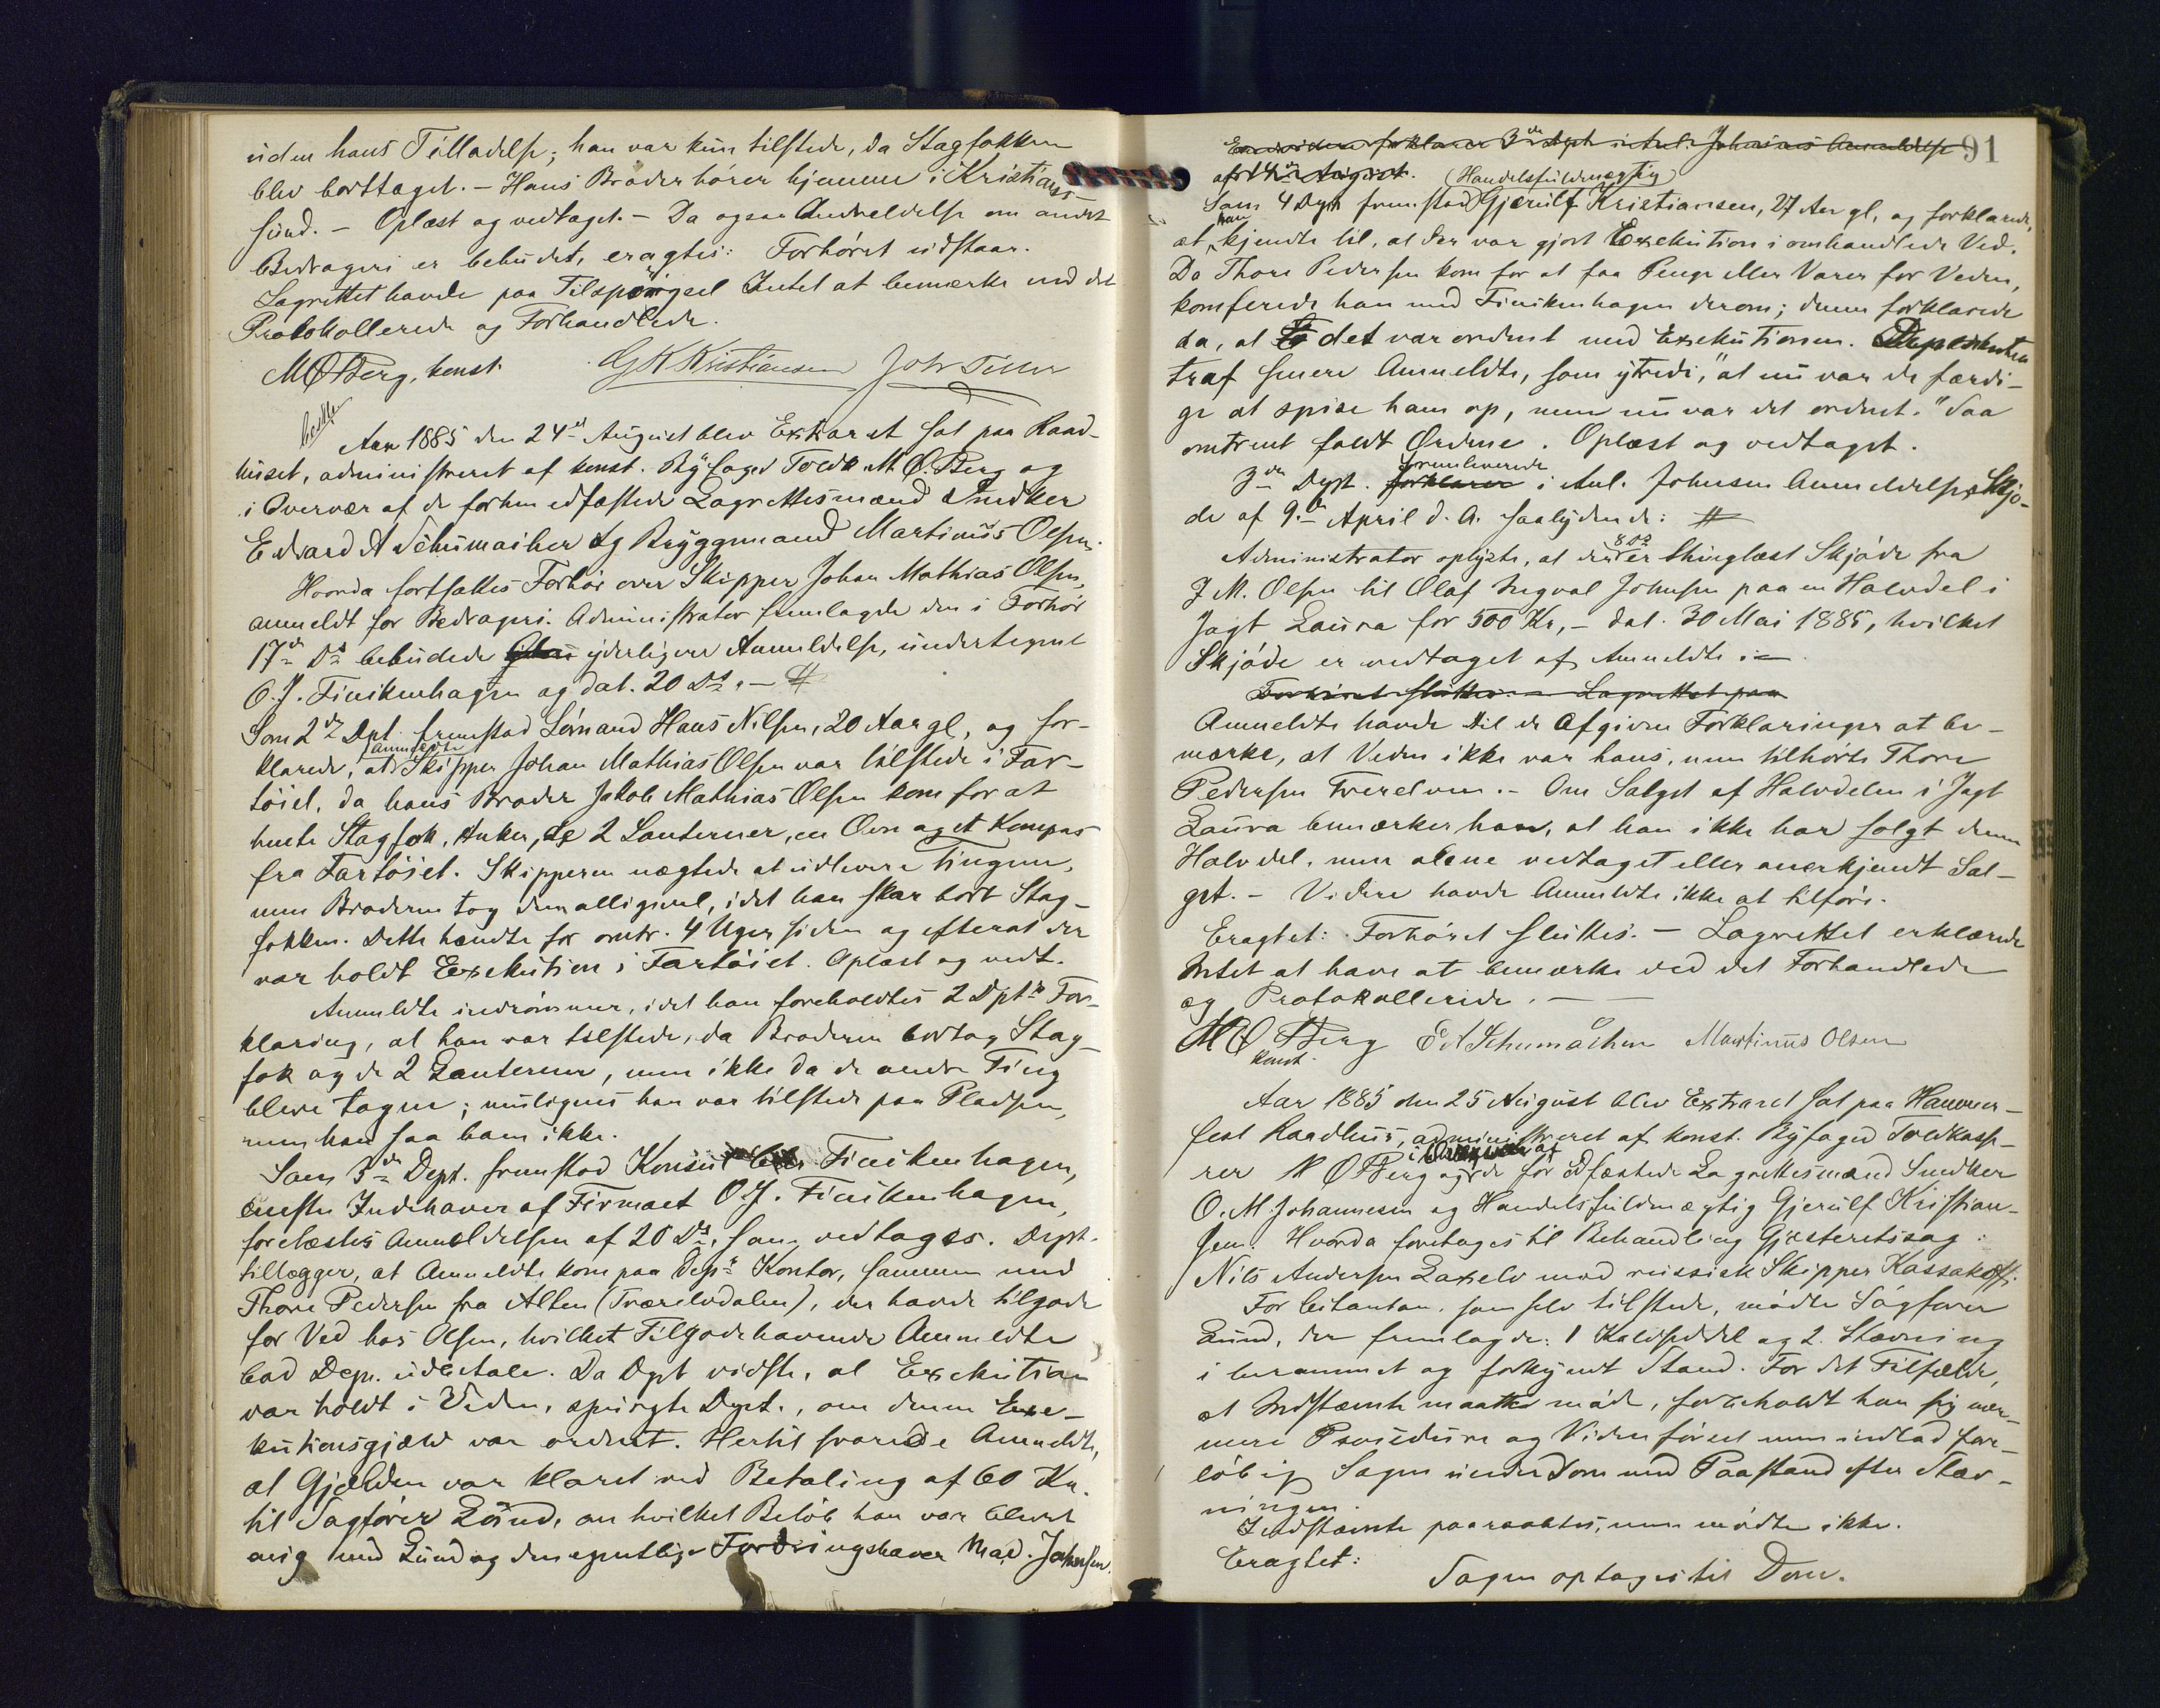 uden hans Tilladelse; han var kun tilstede, da Stagfokken
blev borttaget. – Hans Broder hører hjemme i Kristians-
sund. – Oplæst og vedtaget. – Da ogsaa Anmeldelse om andet
Bedrageri er bebudet, eragtes: Forhøret udstaar.
Lagrettet havde paa Tilspørgsel Intet at bemærke ved det
Protokollerede og Forhandlede.
M Ø Berg, konst. G K Kristiansen Joh Tiller
beskr
Aar 1885 den 24de August blev Extraret sat paa Raad-
huset, administreret af konst. Byfoged Toldk. M. Ø. Berg og
i Overvær af de forhen edfæstede Lagrettesmænd Snedker
Edvard A Schumacher og Bryggemand Martinus Olsen.
Hvorda fortsattes Forhør over Skipper Johan Mathias Olsen,
anmeldt for Bedrageri. Administrator fremlagde den i Forhør
17de Ds bebudede yderligere Anmeldelse, undertegnet
O. J. Finckenhagen og dat. 20 Ds. – #
Som 2de Dpt. fremstod Lørmand Hans Nilsen, 20 Aar gl, og for-
klarede, at anmeldte Skipper Johan Mathias Olsen var tilstede i Far-
tøiet, da hans Broder Jakob Mathias Olsen kom for at
hente Stagfok, Anker, 2 Lanterner, en Ovn og et Kompas
fra Fartøiet. Skipperen nægtede at udlevere Tingene,
men Broderen tog dem alligevel, idet han skar bort Stag-
fokken. Dette hændte for omtr. 4 Uger siden og efterat der
var holdt Exekution i Fartøiet. Oplæst og vedt.
Anmeldte indrømmer, idet han foreholdtes 2 Dpts For-
klaring, at han var tilstede, da Broderen bortog Stag-
fok og de 2 Lanterner, men ikke da de andre Ting
bleve tagne; muligens han var tilstede paa Pladsen,
men han saa ham ikke.
Som 3de Dept. fremstod Konsul Finckenhagen,
eneste Indehaver af Firmaet O. J. Finckenhagen,
forelæstes Anmeldelsen af 20 Ds, som vedtages. Dept.
tillægger, at Anmeldte kom paa Deps Kontor, sammen med
Thore Pedersen fra Alten (Tverelvdalen), der havde tilgode
for Ved hos Olsen, hvilket Tilgodehavende Anmeldte
bad Dep. udbetale. Da Dpt vidste, at Exekution
var holdt i Veden, spurgte Dept., om denne Exe-
kutionsgjæld var ordnet. Hertil svarede Anmeldte,
at Gjælden var klaret ved Betaling af 60 Kr.
til Sagfører Lund, om hvilket Beløb han var blevet
enig med Lund og den egentlige Fordringshaver Mad. Johnsen.
91
Endvidere forklarer 3de Dept i Anl. Johnsens Anmeldelse
af 14de August. (Handelsfuldmægtig)
Som 4 Dept fremstod Gjerulf Kristiansen, 27 Aar gl, og forklarede,
at han kjendte til, at der var gjort Exekution i omhandlede Ved.
Da Thore Pedersen kom for at faa Penge eller Varer for Veden,
konfererede han med Finckenhagen derom; denne forklarede
da, at det var ordnet med Exekutionen. Deponenten
traf senere Anmeldte, som ytrede, "at nu var de færdi-
ge at spise ham op, men nu var det ordnet." Saa
omtrent faldt Ordene. Oplæst og vedtaget.
3de Dept. forklarer fremleverede i Anl. Johnsens Anmeldelse, Skjø-
de af 9de April d. A. saalydende: #
Administrator oplyste, at der er thinglæst Skjøde fra
J M. Olsen til Olaf Ingval Johnsen paa en Halvdel i
Jagt Laura for 500 Kr, – dat. 30 Mai 1885, hvilket
Skjøde er vedtaget af Anmeldte. –
Forhøret sluttes. – Lagrettet paa
Anmeldte havde til de afgivne Forklaringer at be-
mærke, at Veden ikke var hans, men tilhørte Thore
Pedersen Tverelven. – Om Salget af Halvdelen i Jagt
Laura bemærker han, at han ikke har solgt denne
Halvdel, men alene vedtaget eller anerkjendt Sal-
get. – Videre havde Anmeldte ikke at tilføre.
Eragtet: Forhøret sluttes. – Lagrettet erklærede
Intet at have at bemærke ved det Forhandlede
og Protokollerede. –
M Ø Berg E A Schumacher Martinus Olsen
konst.
Aar 1885 den 25 August blev Extraret sat paa Hammer-
fest Raadhus, administreret af konst. Byfoged Toldkasse-
rer M Ø Berg i Overvær af de for Edfæstede Lagrettesmænd Snedker
O. M. Johannesen og Handelsfuldmægtig Gjerulf Kristian-
sen. Hvorda foretoges til Behandling Gjæsteretssag:
Nils Andersen Laxelv mod russisk Skipper Kassakoff.
For Citanten, som selv tilstede, mødte Sagfører
Lund, der fremlagde: 1 Kaldseddel og 2. Stævning
i berammet og forkyndt Stand. For det Tilfælde,
at Indstævnte maatte møde, forbeholdt han sig nær-
mere Procedure og Vidneførsel men indlod fore-
løbig Sagen under Dom med Paastand efter Stæv-
ningen.
Indstævnte paaraabtes, men mødte ikke.
Eragtet:
Sagen optages til Dom.